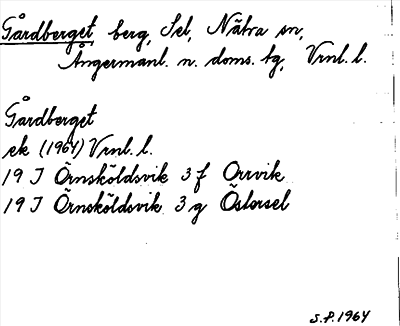 Gårdberget berg, Sel, Nätra sn,
Ångermanl. n. doms. tg, Vrnl. l.
Gårdberget
ek (1964) Vrnl. l.
19 J Örnsköldsvik 3 f Orrvik
19 J Örnsköldsvik 3 g Östersel
S.P. 1964